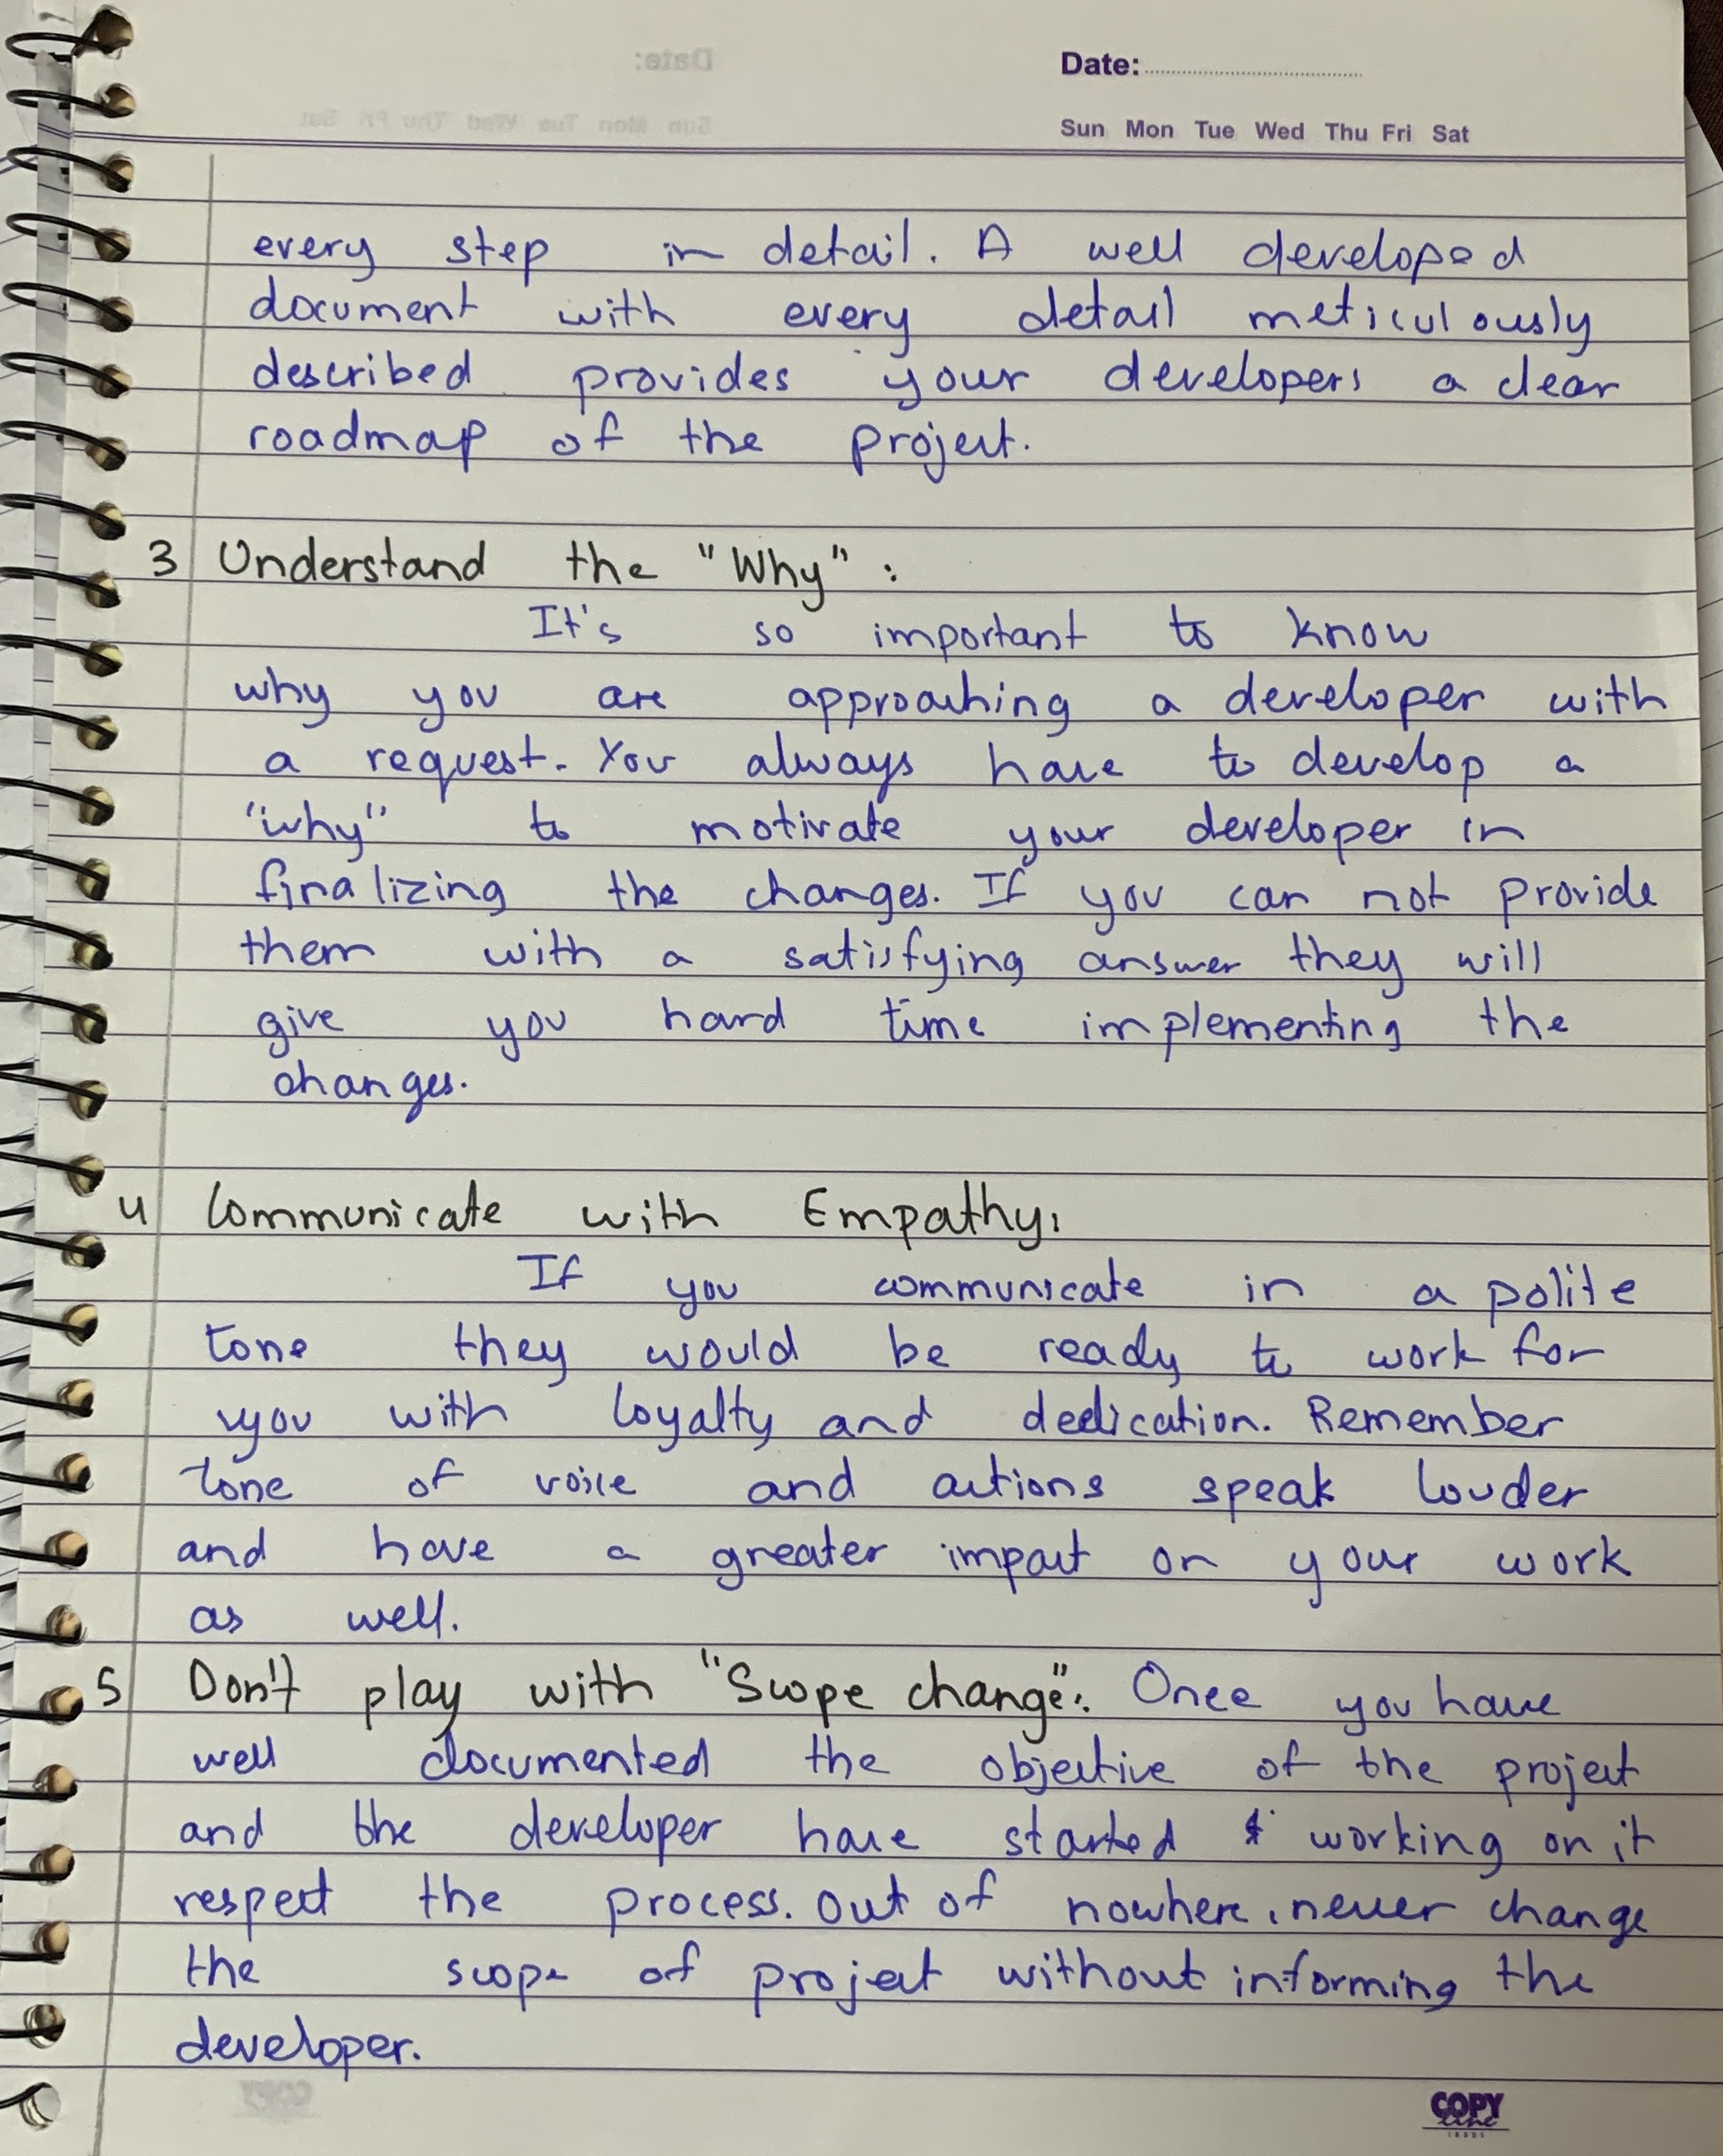 Date:
Sun Mon Tue Wed Thu Fri Sat
every step in detail. A well developed
document with every detail meticulously
described provides your developers a clear
roadmap of the project.
3 Understand the "Why":
It's so important to know
why you are approaching a developer with
a request. You always have to develop a
"why" to motivate your developer in
finalizing the changes. If you can not provide
them with a satisfying answer they will
give you hard time implementing the
changes.
4 Communicate with Empathy:
If you communicate in a polite
tone they would be ready to work for
you with loyalty and dedication. Remember
tone of voice and actions speak louder
and have a greater impact on your work
as well.
5 Don't play with "Scope change": Once you have
well documented the objective of the project
and the developer have started working on it
respect the process. Out of nowhere, never change
the scope of project without informing the
developer.
COPY
line